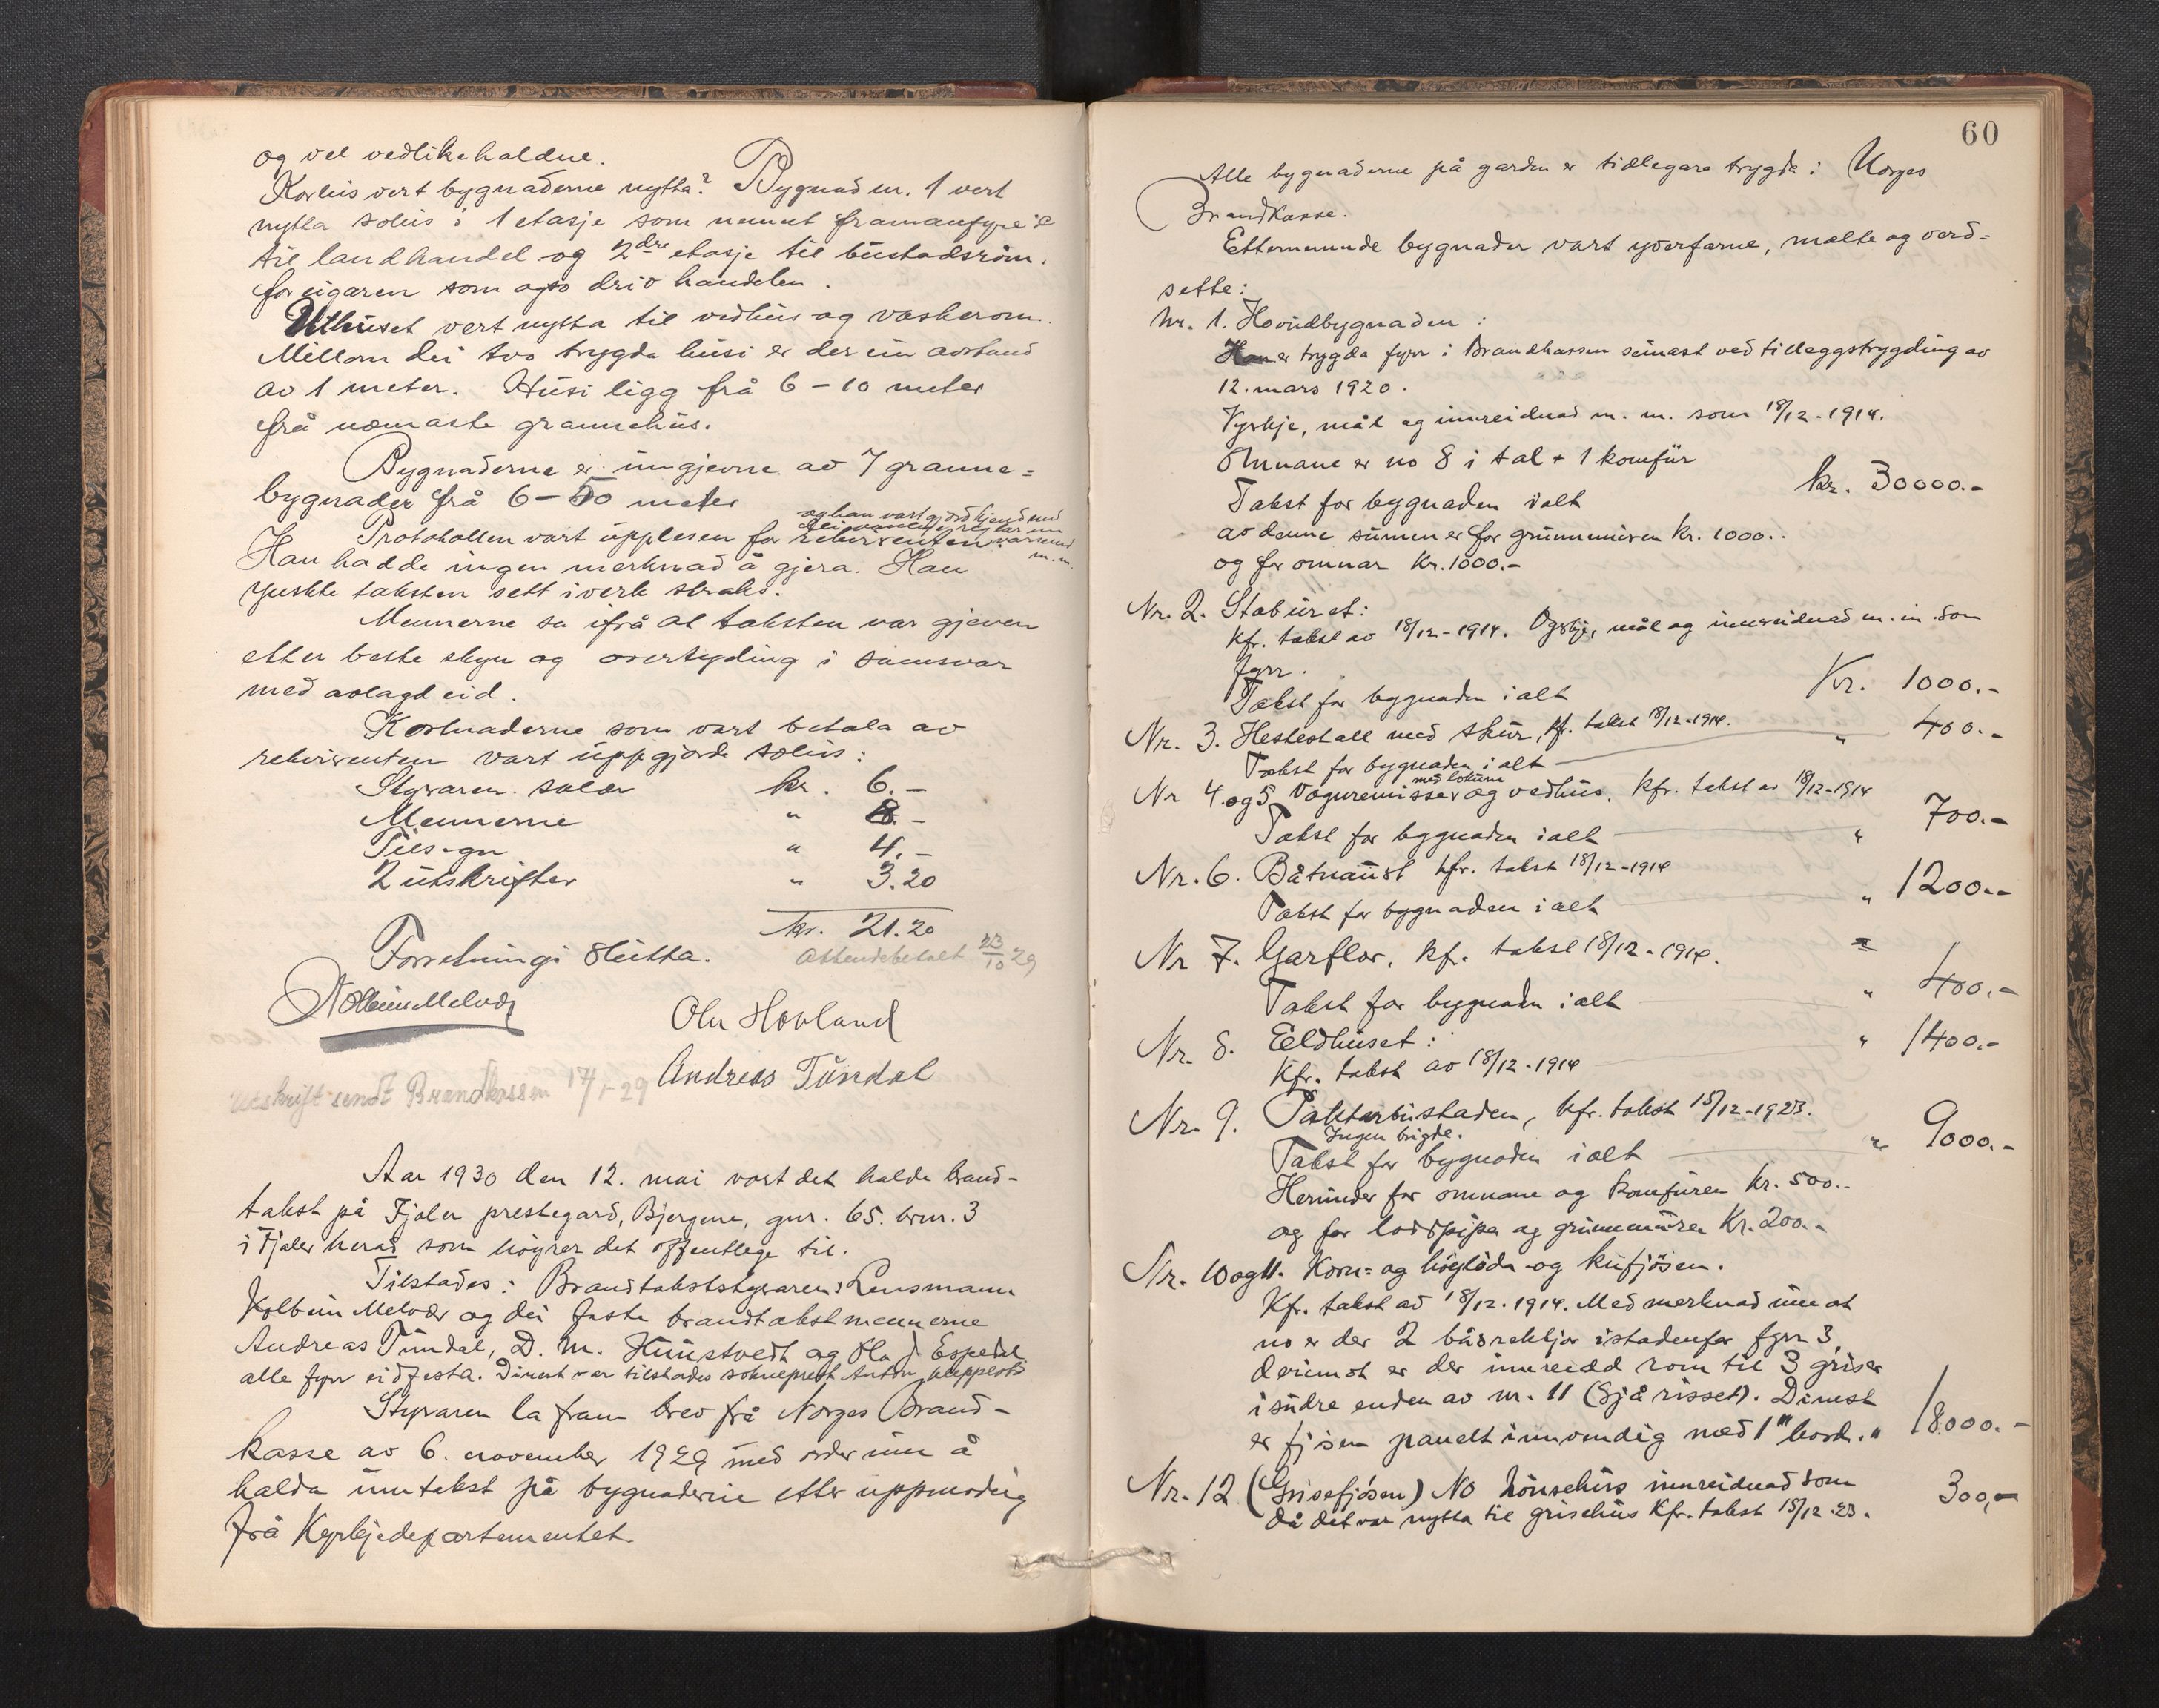 og vel vedlikehaldne.
Korleis vert bygnaderne nytta? Bygnad nr. 1 vert
nytta soleis i 1 etasje som nemnt framanfyre
til landhandel og 2dre etasje til bustadsrom.
for eigaren som ogso driv handelen.
Uthuset vert nytta til vedhus og vaskerom.
Millom dei tvo trygda husi er der ein avstand
av 1 meter. Husi ligg frå 6 - 10 meter
frå næmaste grannehus.
Bygnaderne er umgjevne av 7 granne=
bygnader frå 6 - 50 meter
og han vart gjord kjend med
Protokollen vart upplesen for rekvirenten.
Han hadde ingen merknad å gjera. Han
ynskte taksten sett i verk straks.
Mennerne sa ifrå at taksten var gjeven
etter beste skyn og overtyding i samsvar
med avlagd eid.
Kostnaderne som vart betala av
rekvirenten vart uppgjorde soleis:
Styraren salær kr. 6.-
Mennerne " 8.-
Tilsegn " 4.-
2 utskrifter " 3.20
kr. 21.20
Forretningi slutta. Attendebetalt 23/10 29
Kolbein Melvær
Ole Hovland
Andreas Tündal
Utskrift sendt Brandkassen 17/1-29
Aar 1930 den 12. mai vart det halde brand-
takst på Fjaler prestegard, Bjergene, gnr. 65. brnr. 3
i Fjaler herad som høyrer det offentlege til.
Tilstades: Brandtakststyraren: Lensmann
Kolbein Melvær og dei faste brandtakstmennerne
Andreas Tündal, D. M. Hunstvedt og Ola J. Espedal
alle fyrr eidfesta. Dinæst var tilstades sokneprest Anton
Styraren la fram brev frå Norges Brand-
kasse av 6. november 1929 med order um å
halda umtakst på bygnaderne etter uppmoding
frå Kyrkjedepartementet.
60
Alle bygnaderne på garden er tidlegare trygda i Norges
Brandkasse.
Etternemnde bygnader vart yverfarne, mælte og verd=
sette:
Nr. 1. Hovudbygnaden:
Han er trygda fyrr i Brandkassen seinast ved tilleggstrygding av
12. mars 1920.
Yrkje, mål og innreidnad m. m. som 18/12-1914.
Omnane er no 8 i tal + 1 komfür
Takst for bygnaden ialt kr. 30000.-
av denne sumen er for grunnmuren kr. 1000..
og for omnar kr. 1000.-
Nr. 2. Staburet:
Kfr. takst av 18/12-1914. Yrkje, mål og innreidnad m. m. som
fyrr.
Takst for bygnaden ialt Kr. 1000.-
Nr. 3. Hestestall med skur, kf. takst 18/12-1914.
Takst for bygnaden ialt " 400.-
med lokum
Nr 4. og 5. Vognremisse og vedhus, kfr. takst av 18/12-1914
Takst for bygnaden ialt " 700.-
Nr. 6. Båtnaust kfr. takst 18/12-1914
Takst for bygnaden ialt " 1200.-
Nr 7. Garflor, kf. takst 18/12-1914.
Takst for bygnaden ialt " 400.-
Nr. 8. Eldhuset:
Kfr. takst av 18/12-1914 " 1400.-
Nr. 9. Paktarbustaden, kfr. takst 15/12-1923.
Ingen brigde.
Takst for bygnaden ialt " 9000.-
Herunder for omnane og komfuren kr. 500.-
og for loftpipa og grunnmuren Kr. 200.-
Nr. 10 og 11. Korn= og høyløda og kufjøsen.
Kfr. takst av 18/12-1914. Med merknad um at
no er der 2 båsrekkjor istadenfor fyrr 3,
derimot er der innreidd rom til 3 griser
i sudre enden av nr. 11 (Sjå risset). Dinæst
er fjøsen panelt innvendig med 1" bord. " 18000.-
Nr. 12 (Grisefjøsen) No hønsehus innreidnad som
då det var nytta til grisehus Kfr. takst 15/12-23. 300,-